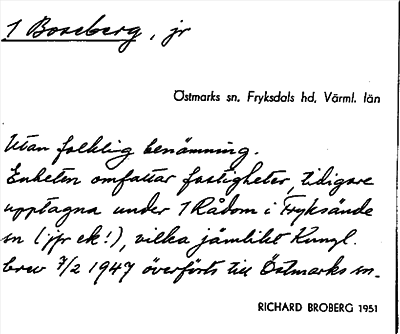 1 Boseberg, jr
Östmarks sn, Fryksdals hd, Värml. län
Utan folklig benämning.
Enheten omfattar fastigheter, tidigare
upptagna under 1 Rådom i Fryksände
sn (jfr ek!), vilka jämlikt Kungl.
brev 7/2 1947 överförts till Östmarks sn.
RICHARD BROBERG 1951